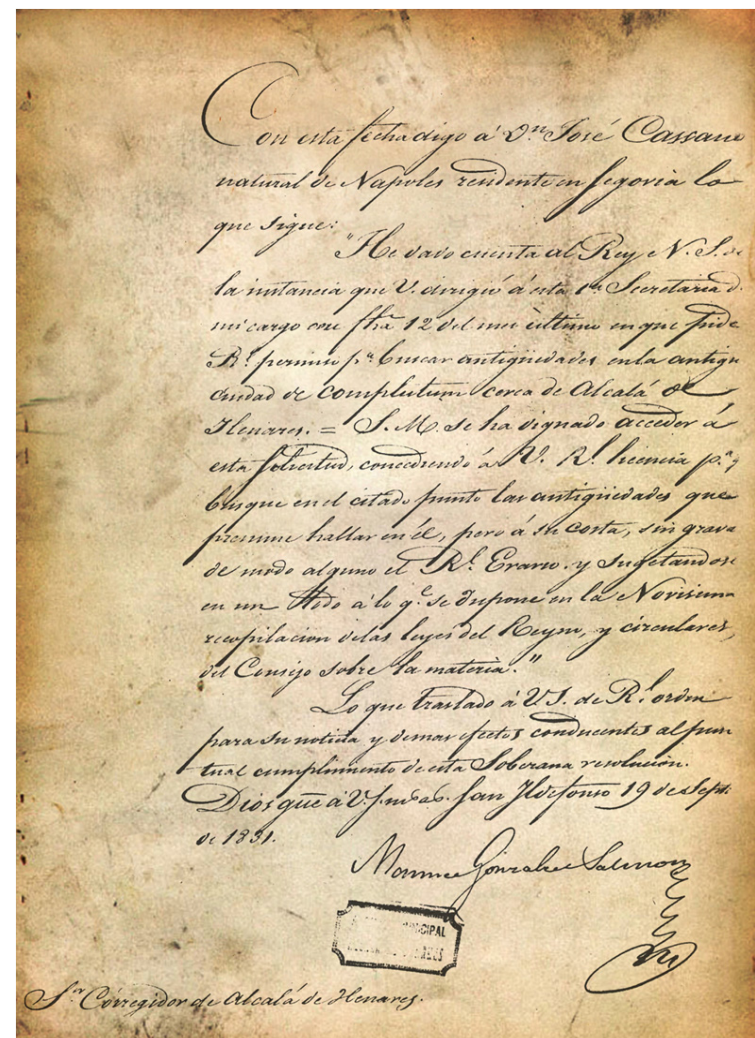 Con esta fecha digo á Dn José Cassano
natural de Napoles residente en Segovia lo
que sigue:
"He dado cuenta al Rey N. S. de
la instancia que V. dirigió á esta 1ra Secretaria d.
mi cargo con fha 12 del mes último en que pide
Rl permiso pa buscar antigüedades en la antigu
ciudad de Complutum cerca de Alcalá de
Henares. = S. M. se ha dignado acceder á
esta solicitud, concediendo á V. Rl licencia pa q
busque en el citado punto las antigüedades que
presume hallar en él, pero á su costa, sin grava
de modo alguno el Rl Erario. y sugetandose
en un todo á lo qe se dispone en la Novisima
recopilacion de las leyes del Reyno, y circulares
del Consejo sobre la materia."
Lo que traslado á V.S. de Rl orden
para su noticia y demas efectos conducentes al pun
tual cumplimiento de esta Soberana resolucion.
Dios güe á V.S. ms as. San Ildefonso 19 de Sept.
de 1831.
Gonzalez Salmon
MUNICIPAL
Sor Corregidor de Alcalá de Henares.